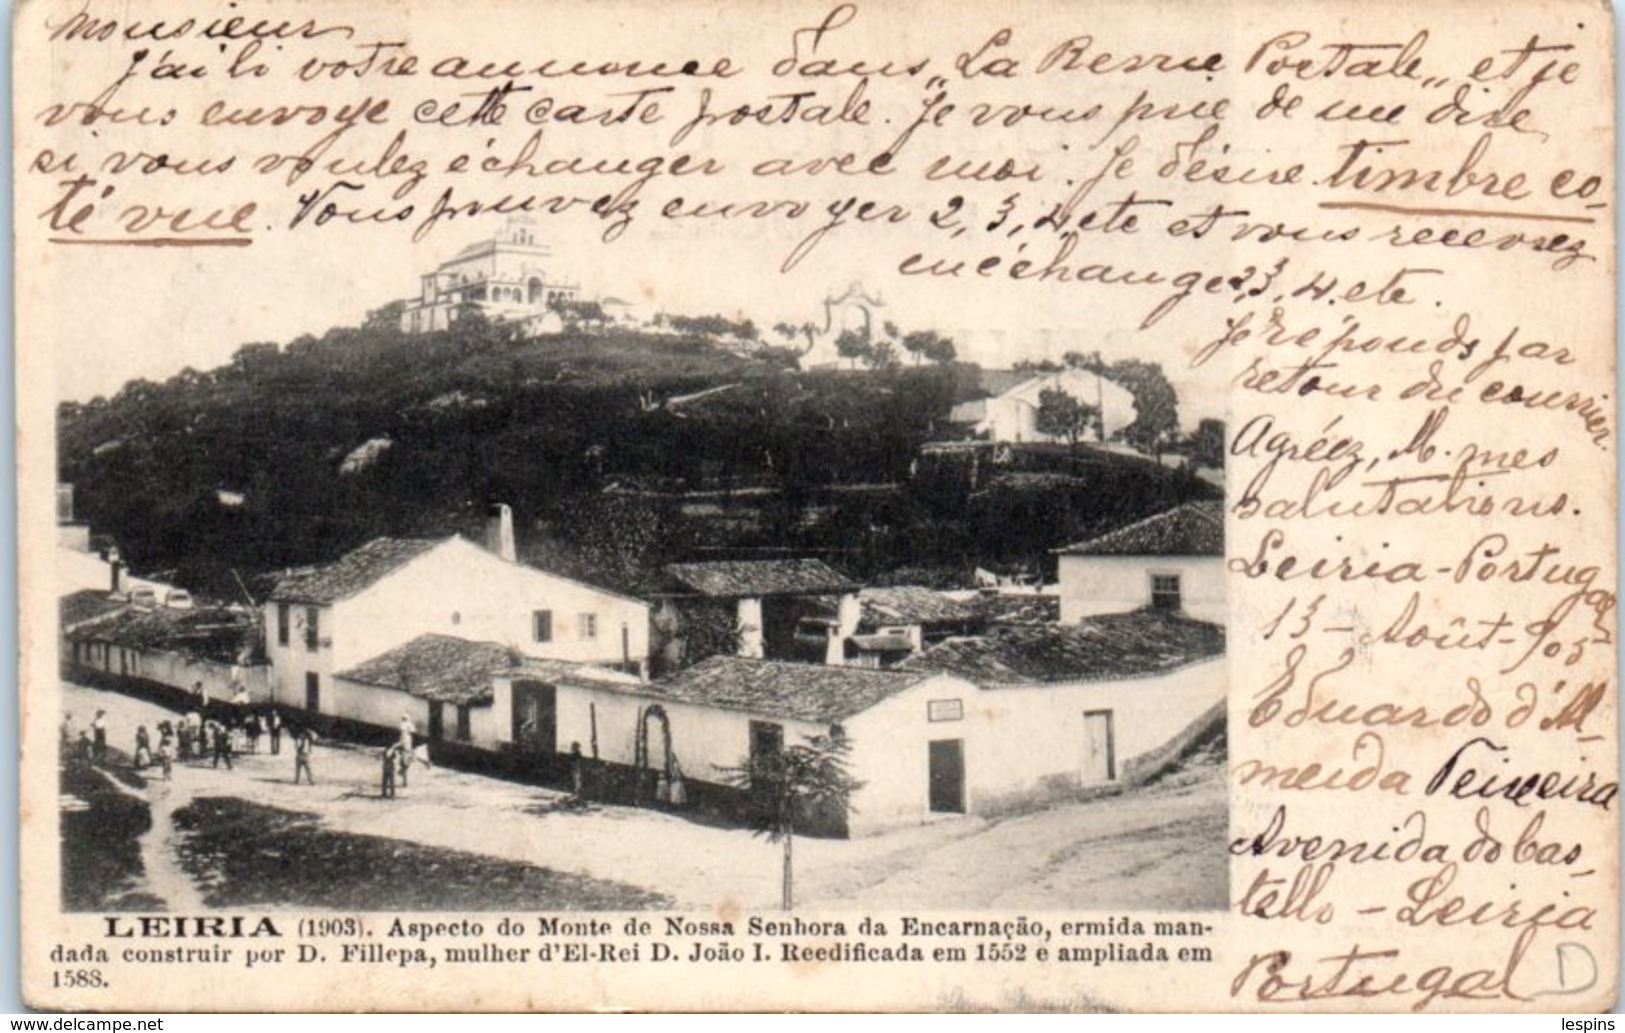 Monsieur
J'ai li votre annonce dans „La Revue Postale„ et je
vous envoye cette carte postale. Je vous prie de me dire
si vous voulez échanger avec moi. Je désire timbre co-
té vue. Vous pouvez envoyer 2, 3, 4, etc et vous recevrez
en échange 2, 3, 4. etc.
Je réponds par
retour du courrier
Agréez, M. mes
salutations.
Leiria-Portugal
13-Août-905
Eduardo d'Al-
meida Teixeira
Avenida do Cas-
tello - Leiria
Portugal
D
LEIRIA (1903). Aspecto do Monte de Nossa Senhora da Encarnação, ermida man-
dada construir por D. Fillepa, mulher d'El-Rei D. João I. Reedificada em 1552 e ampliada em
1588.
lespins